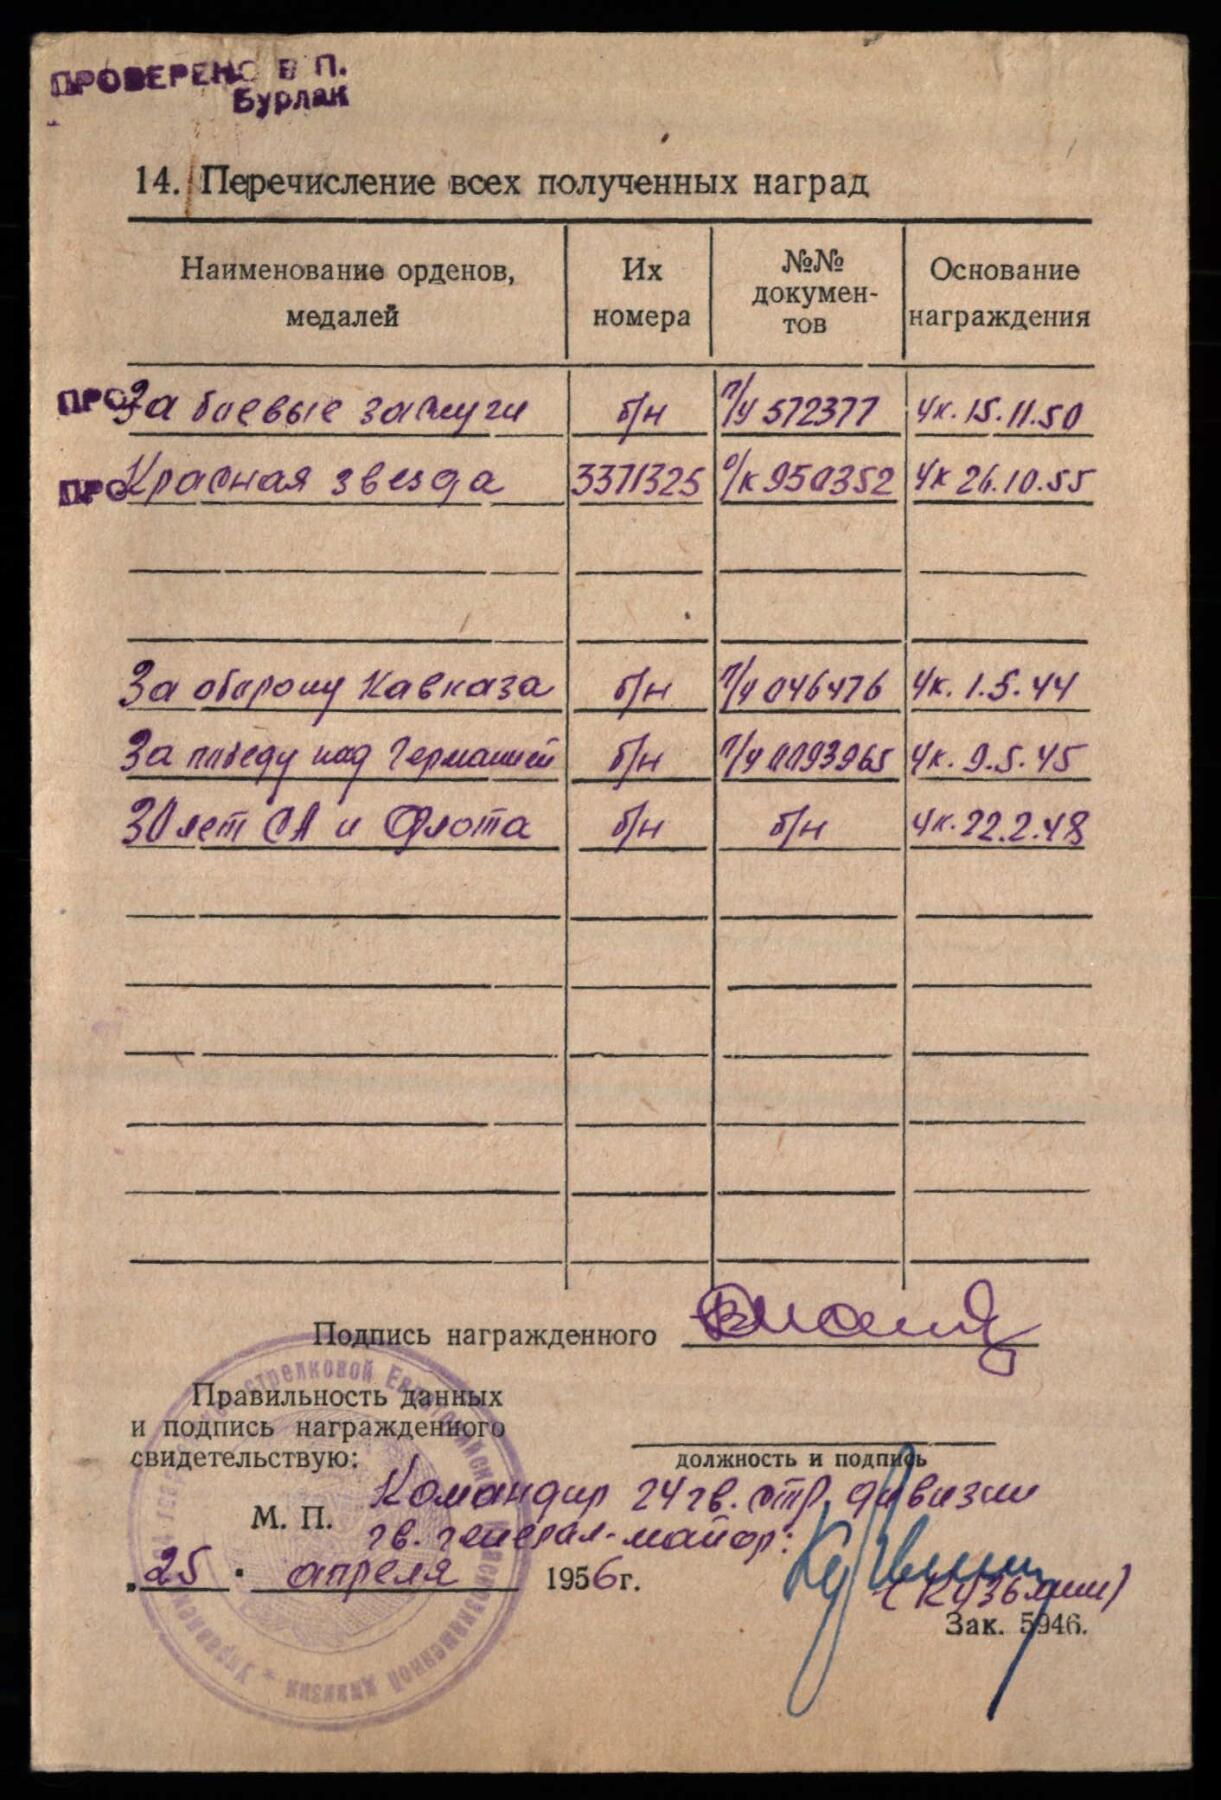 ПРОВЕРЕНО В П.
Бурлак
14. Перечисление всех полученных наград
Наименование орденов, медалей Их номера №№ докумен-тов Основание награждения
ПРО За боевые заслуги б/н п/у 572377 Ук. 15.11.50
ПРО Красная звезда 3371325 о/к 950352 Ук 26.10.55
За оборону Кавказа б/н п/у 046476 Ук. 1.5.44
За победу над Германией б/н п/у 0093965 Ук. 9.5.45
30 лет СА и Флота б/н б/н Ук. 22.2.48
Подпись награжденного
Правильность данных
и подпись награжденного
свидетельствую:
должность и подпись
Командир 24 гв. стр. дивизии
М. П.
гв. генерал-майор:
„25 " апреля 1956 г.
(Кузьмин)
Зак. 5946.
стрелковой Евпаторийской Краснознаменной дивизии * Управление